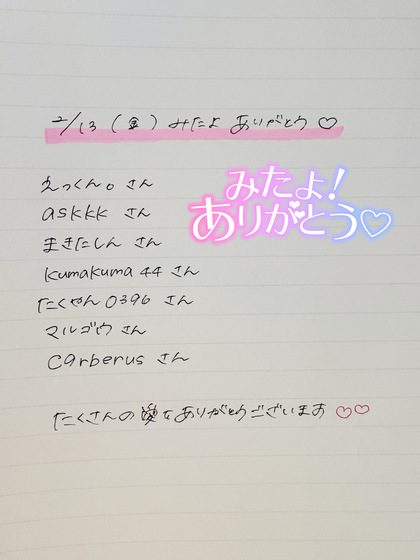 2/13 (金) みたよ ありがとう♡
みたよ!
ありがとう♡
えっくん。さん
askkk さん
まきたしん さん
kumakuma 44 さん
たくやん 0396 さん
マルゴウ さん
carberus さん
たくさんの なありがとうございます ♡♡